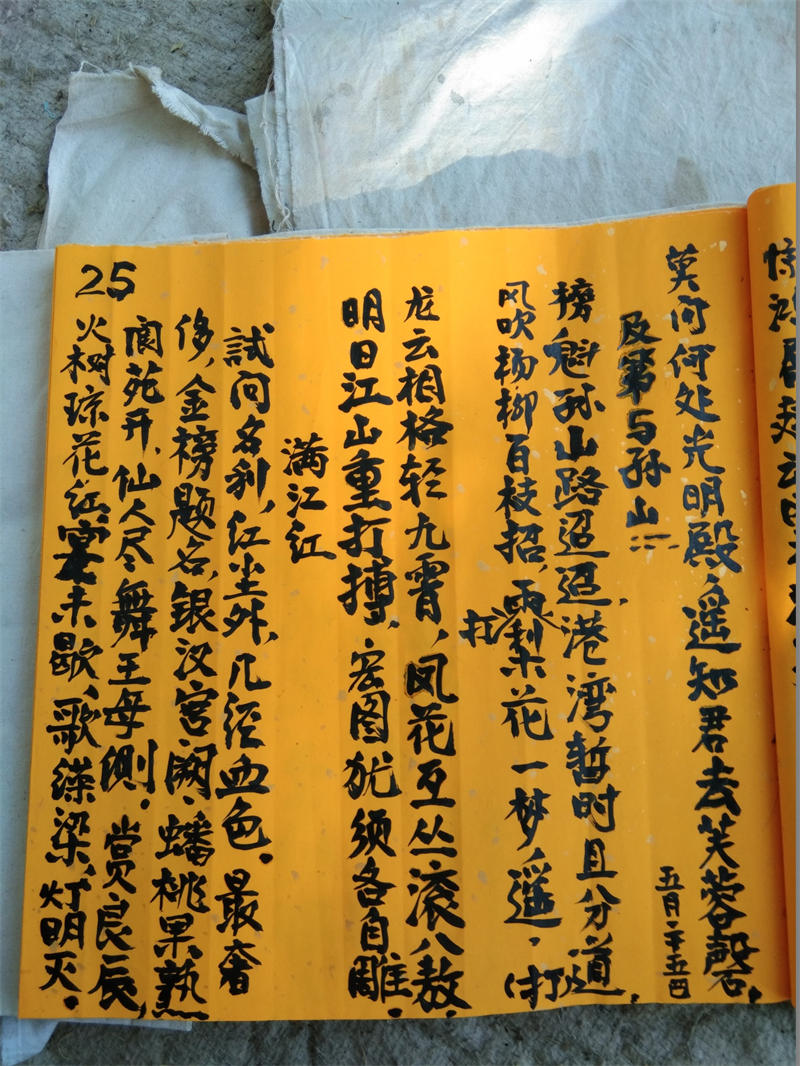 莫问何处光明殿，遥知君去芙蓉磬。
五月二十五日
及第与孙山
榜魁孙山路迢迢，港湾暂时且分道，
风吹杨柳百枝招，雨打梨花一梦遥，（打）
龙云相格轻九霄，凤花互丛滚八敖，
明日江山重打搏，宏图犹须各自雕，
满江红
試问名利，红尘外，几经血色。最奢
侈，金榜题名，银汉宫阙，蟠桃果熟
阆苑开，仙人尽舞王母侧，赏良辰，
火树琼花红，宴未歇，歌绕梁，灯明灭。
25